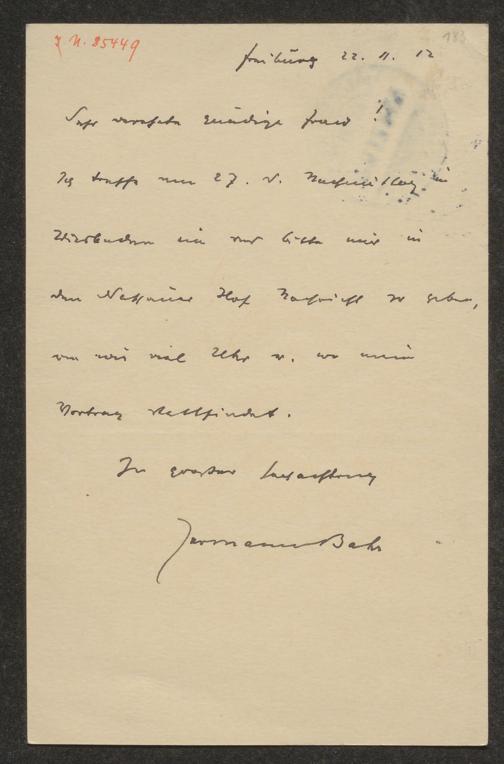 J. N. 85449
183
Freiburg 22. 11. 12
Sehr verehrte gnädige Frau!
Ich treffe am 27. d. Nachmittag in
Wiesbaden ein und bitte mir in
den Nassauer Hof Nachricht zu geben,
um wie viel Uhr u. wo mein
Vortrag stattfindet.
In grosser Hochachtung
Hermann Bahr